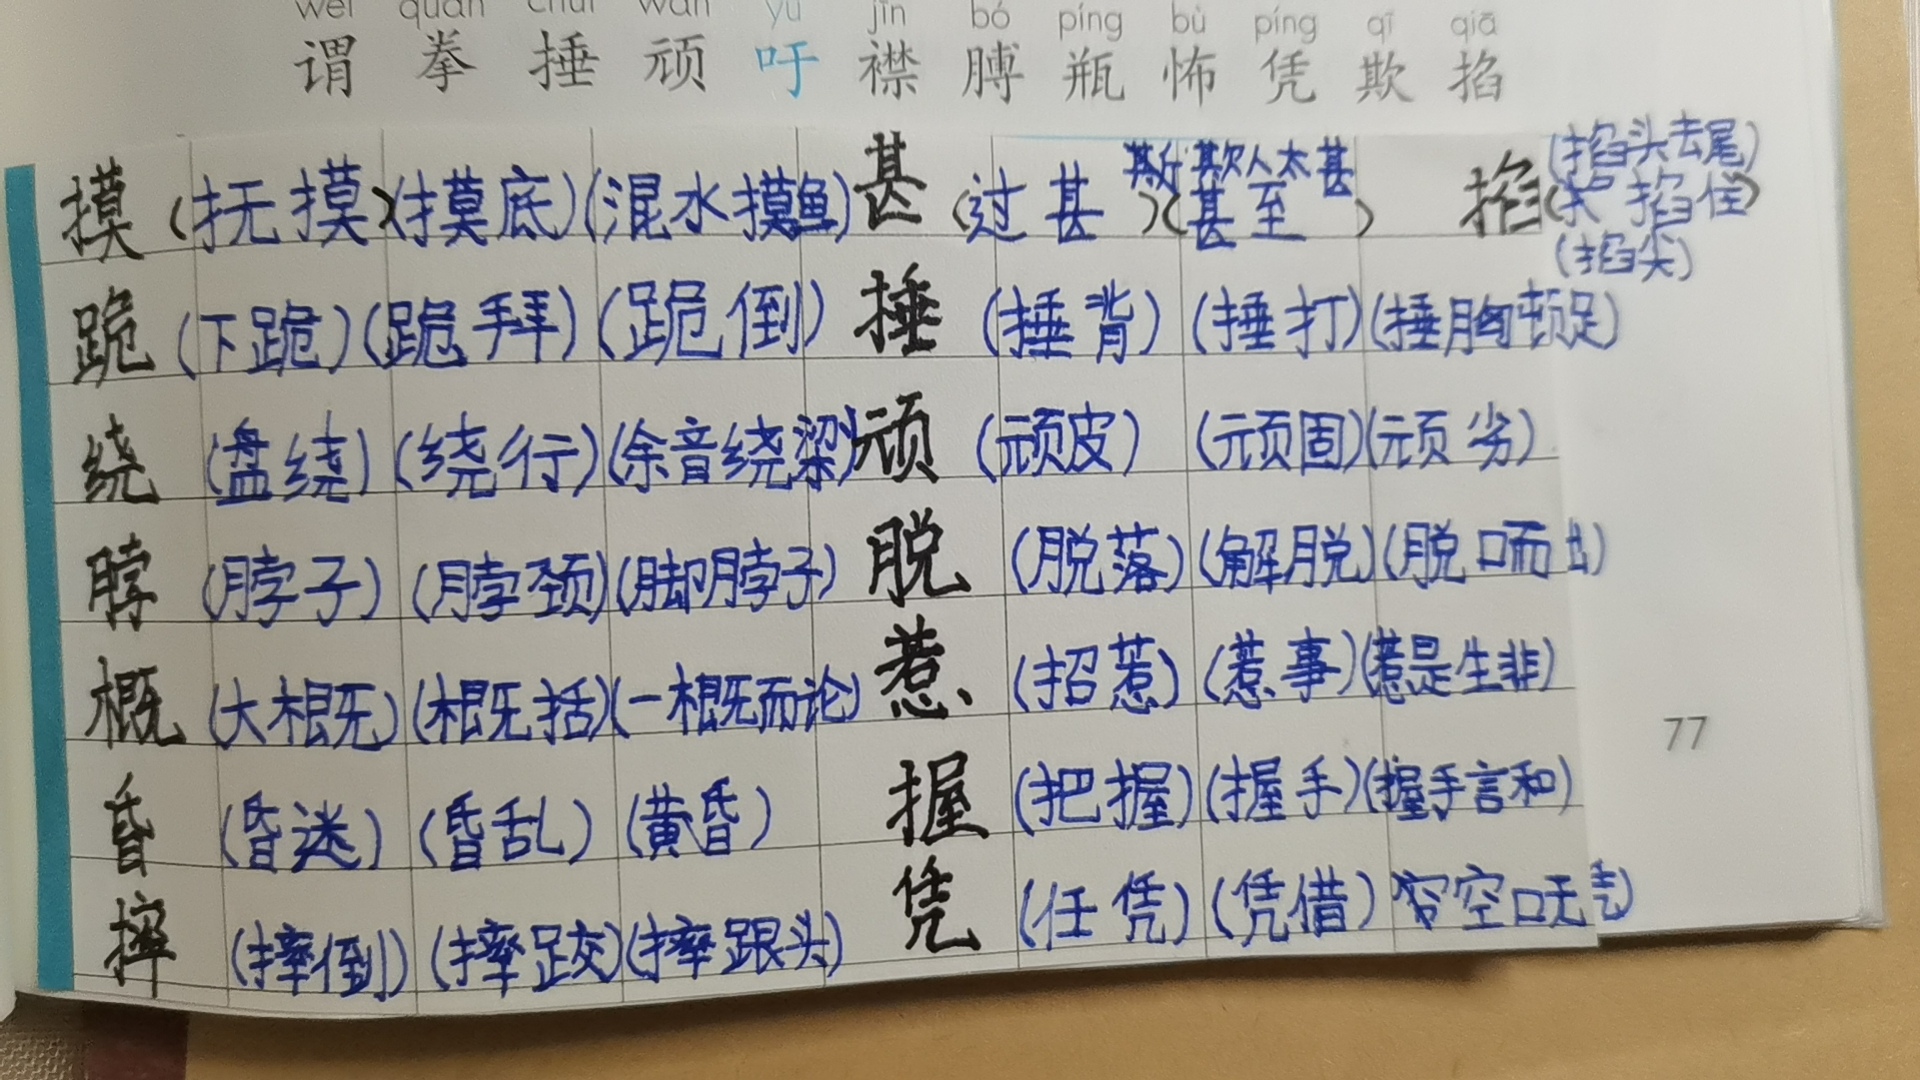 wèi quán chuí wán yù jīn bó píng bù píng qī qiā
谓 拳 捶 顽 吁 襟 膊 瓶 怖 凭 欺 掐
摸 (抚摸)(摸底)(混水摸鱼) 甚 (过甚)(甚至 欺人太甚) 掐 (掐头去尾) (掐住) (掐尖)
跪 (下跪)(跪拜)(跪倒) 捶 (捶背)(捶打)(捶胸顿足)
绕 (盘绕)(绕行)(余音绕梁) 顽 (顽皮)(顽固)(顽劣)
脖 (脖子)(脖颈)(脚脖子) 脱 (脱落)(解脱)(脱口而出)
概 (大概)(概括)(一概而论) 惹 (招惹)(惹事)(惹是生非)
77
昏 (昏迷)(昏乱)(黄昏) 握 (把握)(握手)(握手言和)
摔 (摔倒)(摔跤)(摔跟头) 凭 (任凭)(凭借) 空口无凭)